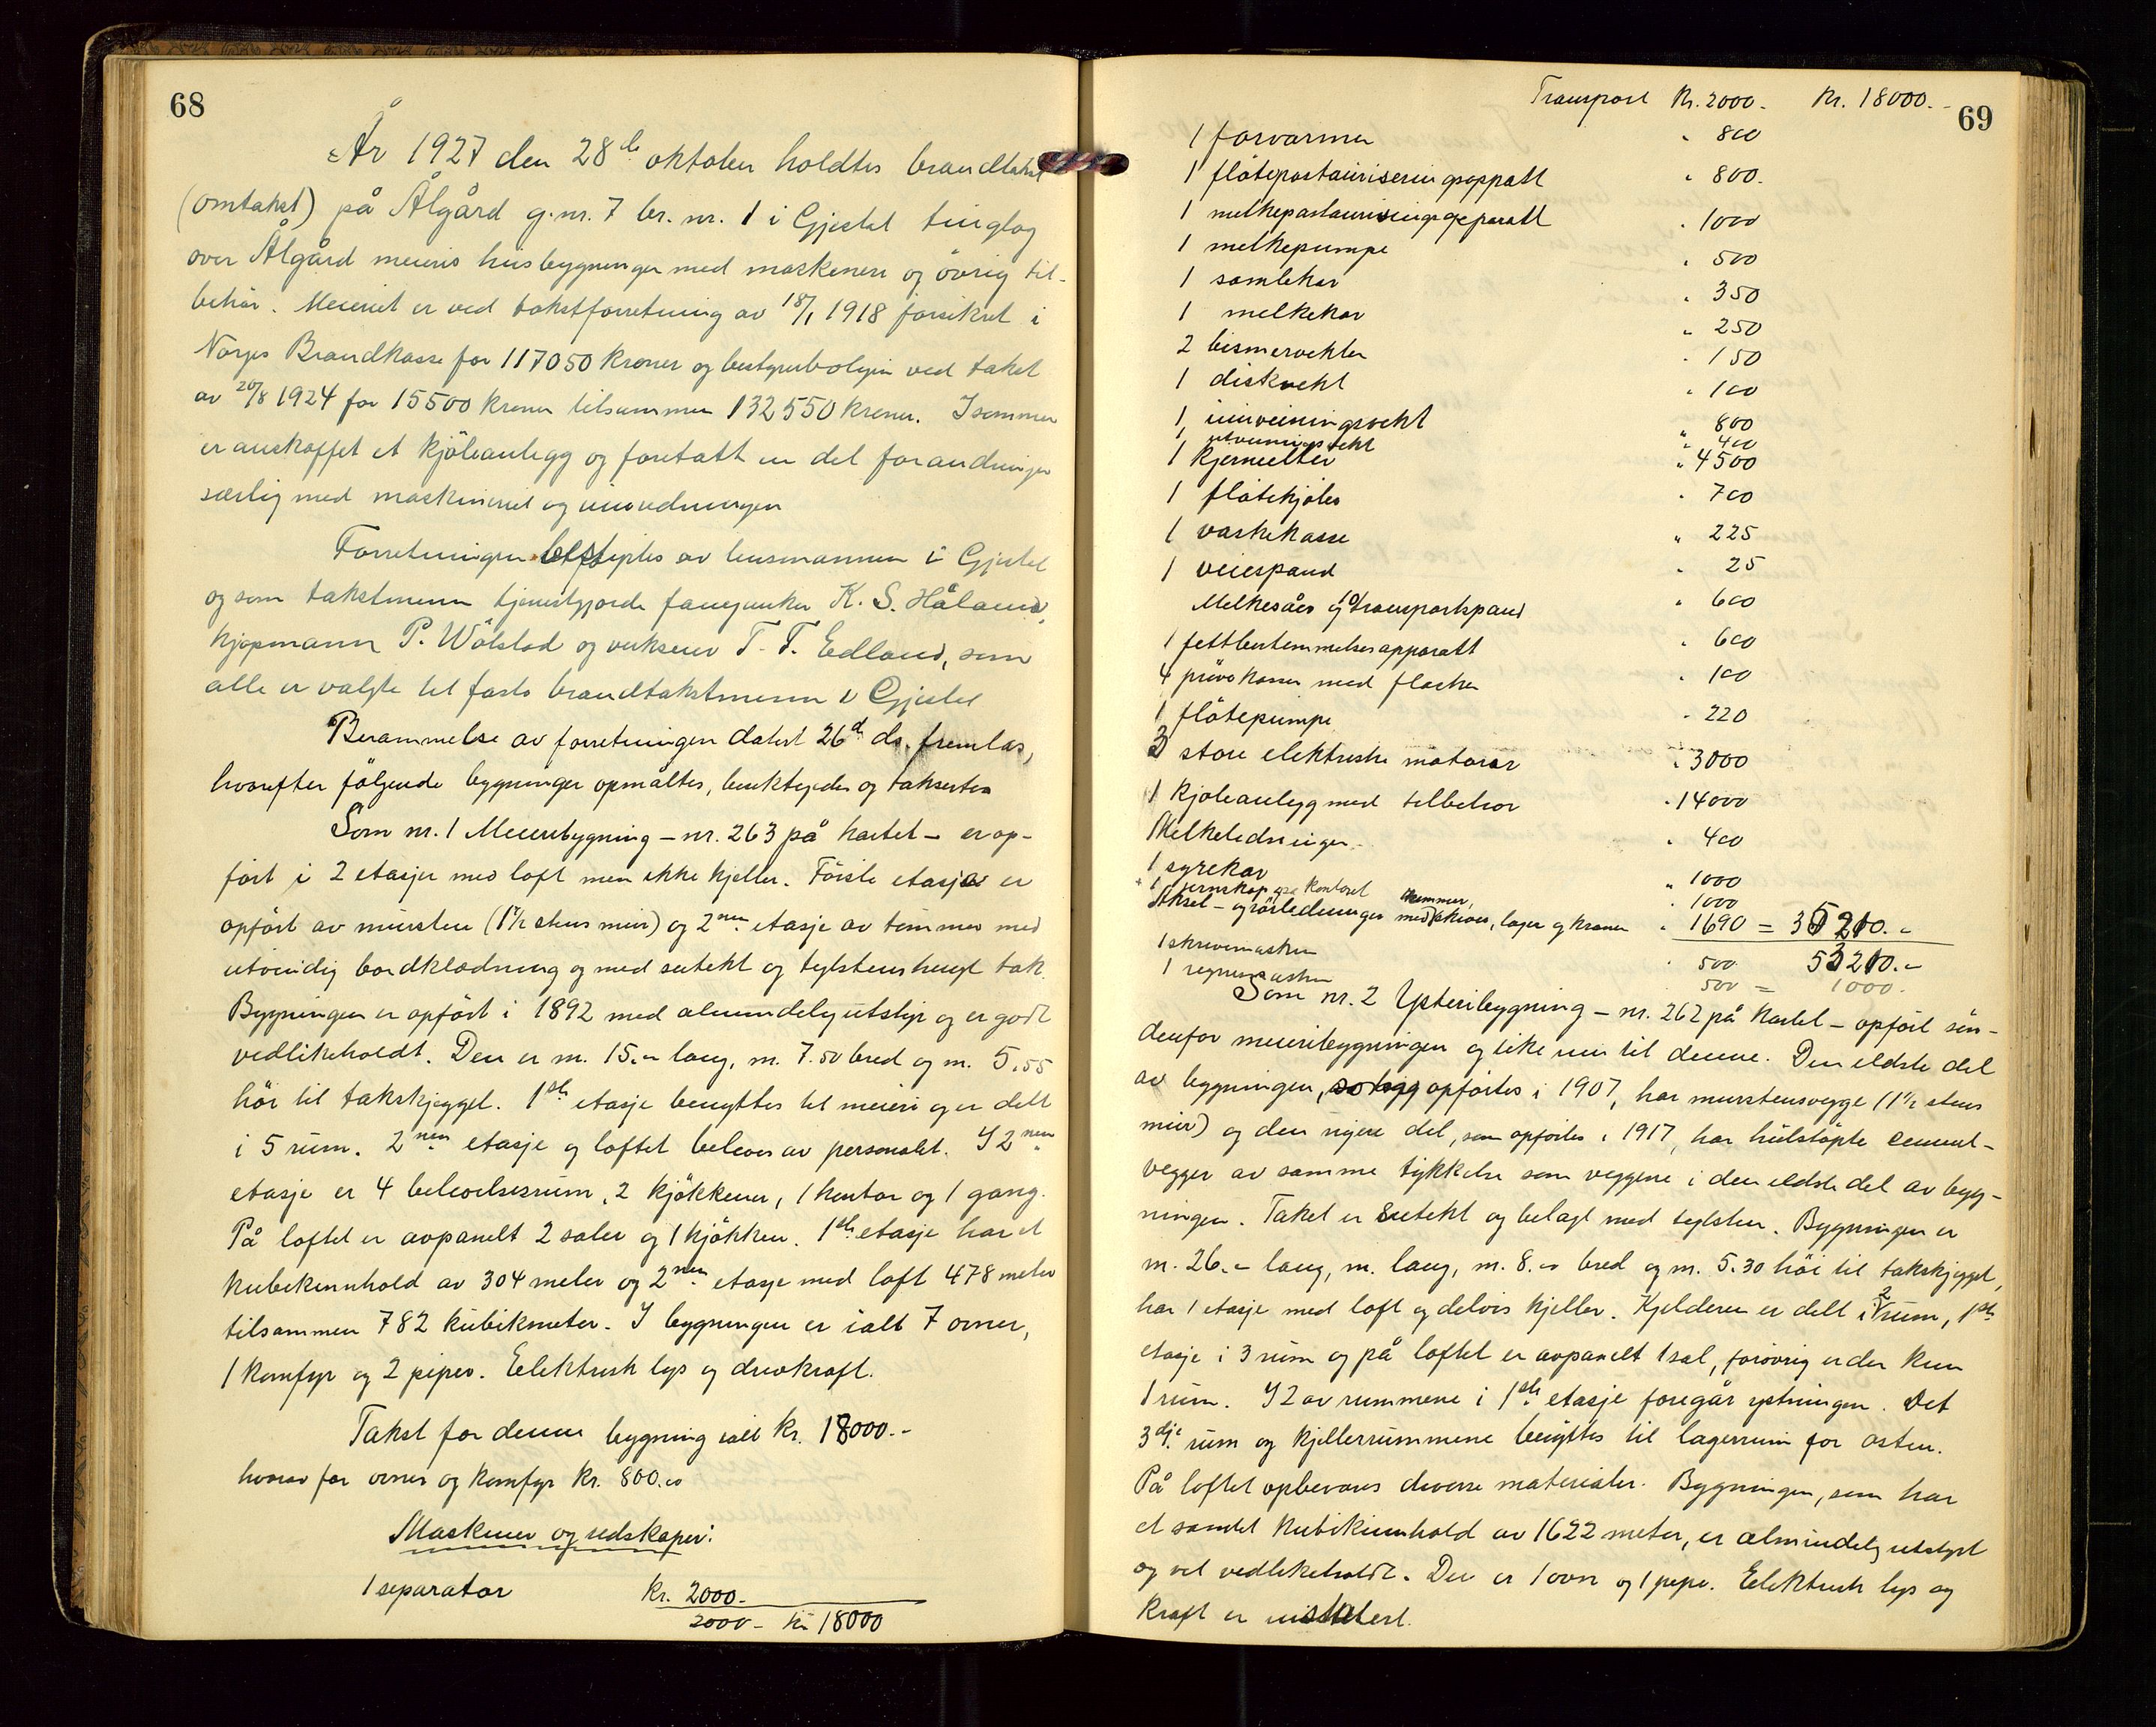 68
År 1927 den 28de oktober holdtes brandtakst
(omtakst) på Ålgård g.nr. 7 br. nr. 1 i Gjestal tinglag
over Ålgård meieris husbygninger med maskineri og övrig til-
behör. Meieriet er ved takstforretning av 18/1 1918 forsikret i
Norges Brandkasse for 117050 kroner og bestyrerboligen ved takst
av 20/8 1924 for 15500 kroner tilsammen 132550 kroner. I sommer
er anskaffet et kjöleanlegg og foretatt en del forandringer
særlig med maskineriet og innredningen
Forretningen bestyrtes av lensmannen i Gjestal
og som takstmenn tjenestgjorde fanejunker K. S. Håland,
kjöpmann P. Wölstad og verkseier T. T. Edland, som
alle er valgte til faste brandtakstmenn i Gjestal
Berammelse av forretningen datert 26de ds. fremlas,
hvorefter fölgende bygninger opmåltes, besiktigedes og taksertes
Som nr. 1 Meieribygning – nr. 263 på kartet – er op-
fört i 2 etasjer med loft men ikke kjeller. Förste etasje er
opfört av mursten (1 1/2 stens mur) og 2nen etasje av tömmer med
utvendig bordklædning og med sutekt og teglstenshengt tak.
Bygningen er opfört i 1892 med almindelig utstyr og er godt
vedlikeholdt. Den er m. 15.- lang, m. 7.50 bred og m. 5.55
höi til takskjegget. 1ste etasje benyttes til meieri og er delt
i 5 rum. 2nen etasje og loftet beboes av personalet. I 2nen
etasje er 4 beboelsesrum, 2 kjökkener, 1 kontor og 1 gang.
På loftet er avpanelt 2 saler og 1 kjökken. 1ste etasje har et
kubikinnhold av 304 meter og 2nen etasje med loft 478 meter
tilsammen 782 kubikmeter. I bygningen er ialt 7 ovner,
1 komfyr og 2 piper. Eelektrisk lys og drivkraft.
Takst for denne bygning ialt kr. 18000.-
hvorav for ovner og komfyr kr. 800.00
Maskiner og redskaper:
1 separator kr. 2000.-
2000.- kr 18000
69
Transport Kr. 2000.- Kr. 18000.-
1 forvarmer " 800
1 flötepastauriseringsapparatt " 800.
1 melkepastauriseringsapparatt " 1000
1 melkepumpe " 500
1 samlekar " 350
1 melkekar " 250
2 bismervekter " 150
1 diskvekt " 100
1 innveiningsvekt " 800
1 utveiningsvekt " 400
1 kjerneelter " 4500
1 flötekjöler " 700
1 vaskekasse " 225
1 veiespand " 25
Melkesåer og 10 transportspand " 600
1 fettbestemmelsesapparatt " 600
4 prövekasser med flasker " 100
1 flötepumpe " 220
3 store elektriske motorer " 3000
1 kjöleanlegg med tilbehör " 14000
Melkeledninger " 400
1 syrekar " 1000
1 jernskap på kontoret " 1000
Aksel- og rörledninger med remmer, skiver, lager og kraner " 1690 = 35210.-
53210.-
1 skrivemaskin " 500
1 regnemaskin 500 = 1000.
Som nr. 2 Ysteribygning – nr. 262 på kartet – opfört sön-
denfor meieribygningen og like inn til denne. Den eldste del
av bygningen, opförtes i 1907, har murstensvegge (1 1/2 stens
mur) og den nyere del, som opförtes i 1917, har hulstöpte cement-
vegger av samme tykkelse som veggene i den eldste del av byg-
ningen. Taket er sutekt og belagt med teglsten. Bygningen er
m. 26.- lang, m. lang, m. 8.00 bred og m. 5.30 höi til takskjegget,
har 1 etasje med loft og delvis kjeller. Kjelderen er delt i 2 rum, 1ste
etasje i 3 rum og på loftet er avpanelt 1 sal, forövrig er der kun
1 rum. I 2 av rummene i 1ste etasje foregår ystningen. Det
3dje rum og kjellerrummene benyttes til lagerrum for osten.
På loftet opbevares diverse materialer. Bygningen, som har
et samlet kubikinnhold av 1622 meter, er almindelig utstyrt
og vel vedlikeholdt. Der er 1 ovn og 1 pipe. Eelektrisk lys og
kraft er installert.